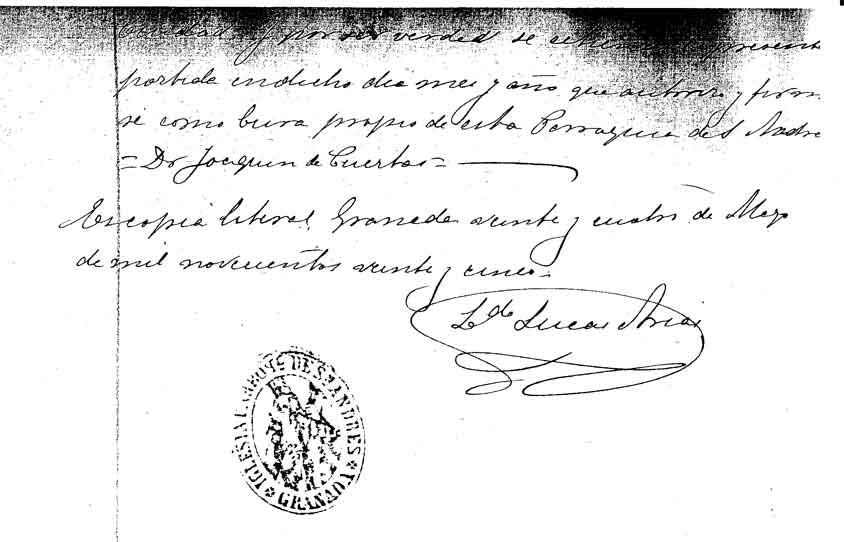 ciudad. Y por ser verdad se extiende presente
partida en dicho dia mes y año, que autorizo y firm
sé como Cura propio de esta Parroquia de S Andre
= Dr Joaquin de Cuertas =
Es copia literal. Granada veinte y cuatro de Mayo
de mil novecientos veinte y cinco.
Ldo Lucas Arias
IGLESIA PARROQ.L DE S.N ANDRES
* GRANADA *